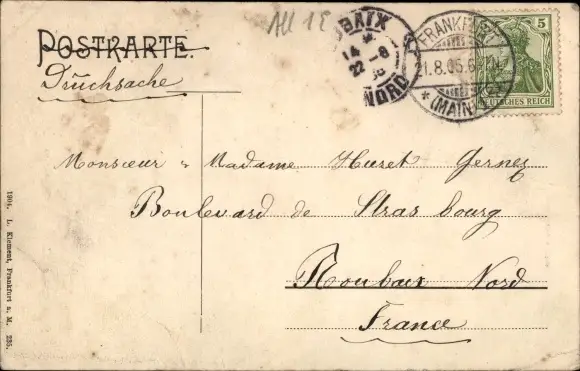 All 1 E
POSTKARTE.
Drucksache
ROUBAIX
14 *
22 - 8
05
NORD
FRANKFURT
21.8.05.6
* (MAIN)
5
DEUTSCHES REICH
Monsieur & Madame Huret Gernez
Boulevard de Strasbourg
Roubaix Nord
France
1904, L. Klement, Frankfurt a. M. 235.